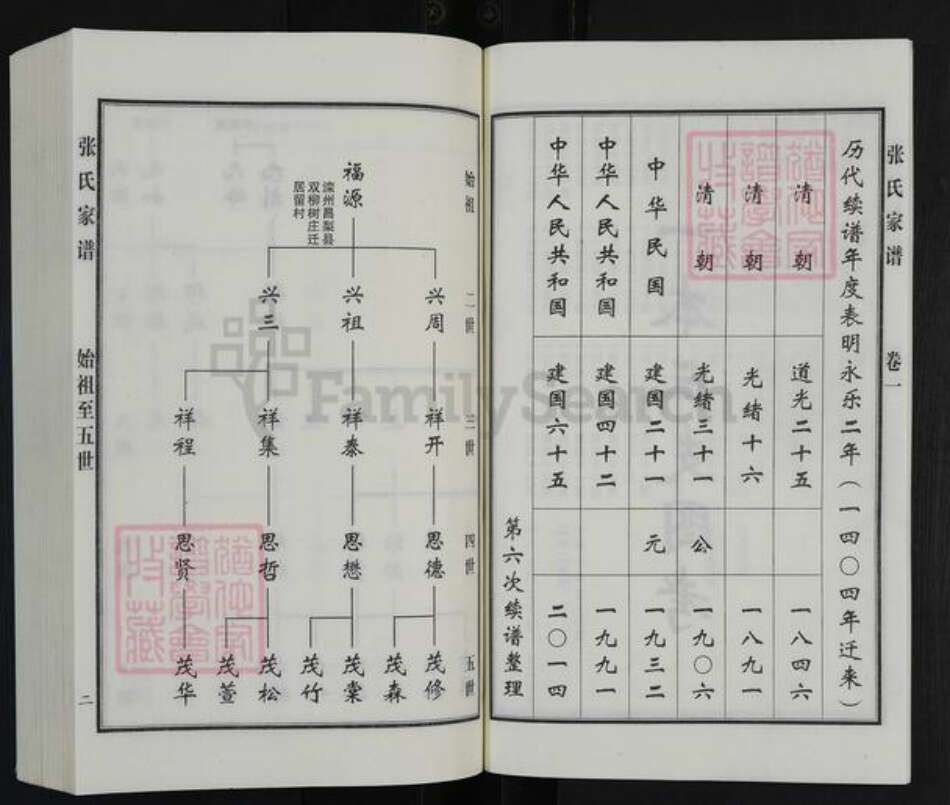 张氏家谱 卷一
历代续谱年度表明永乐二年(一四〇四年迁来)
清朝 道光二十五 一八四六
清朝 光绪十六 一八九一
清朝 光绪三十一 公 一九〇六
中华民国 建国二十一 元 一九三二
中华人民共和国 建国四十二 一九九一
中华人民共和国 建国六十五 二〇一四
第六次续谱整理
始祖
二世
三世
四世
五世
福源
滦州昌梨县
双柳树庄迁
居留村
兴周
兴祖
兴三
祥开
祥泰
祥集
祥程
恩德
恩懋
恩哲
恩贤
茂修
茂森
茂棠
茂竹
茂松
茂萱
茂华
张氏家谱 始祖至五世 二
FamilySearch